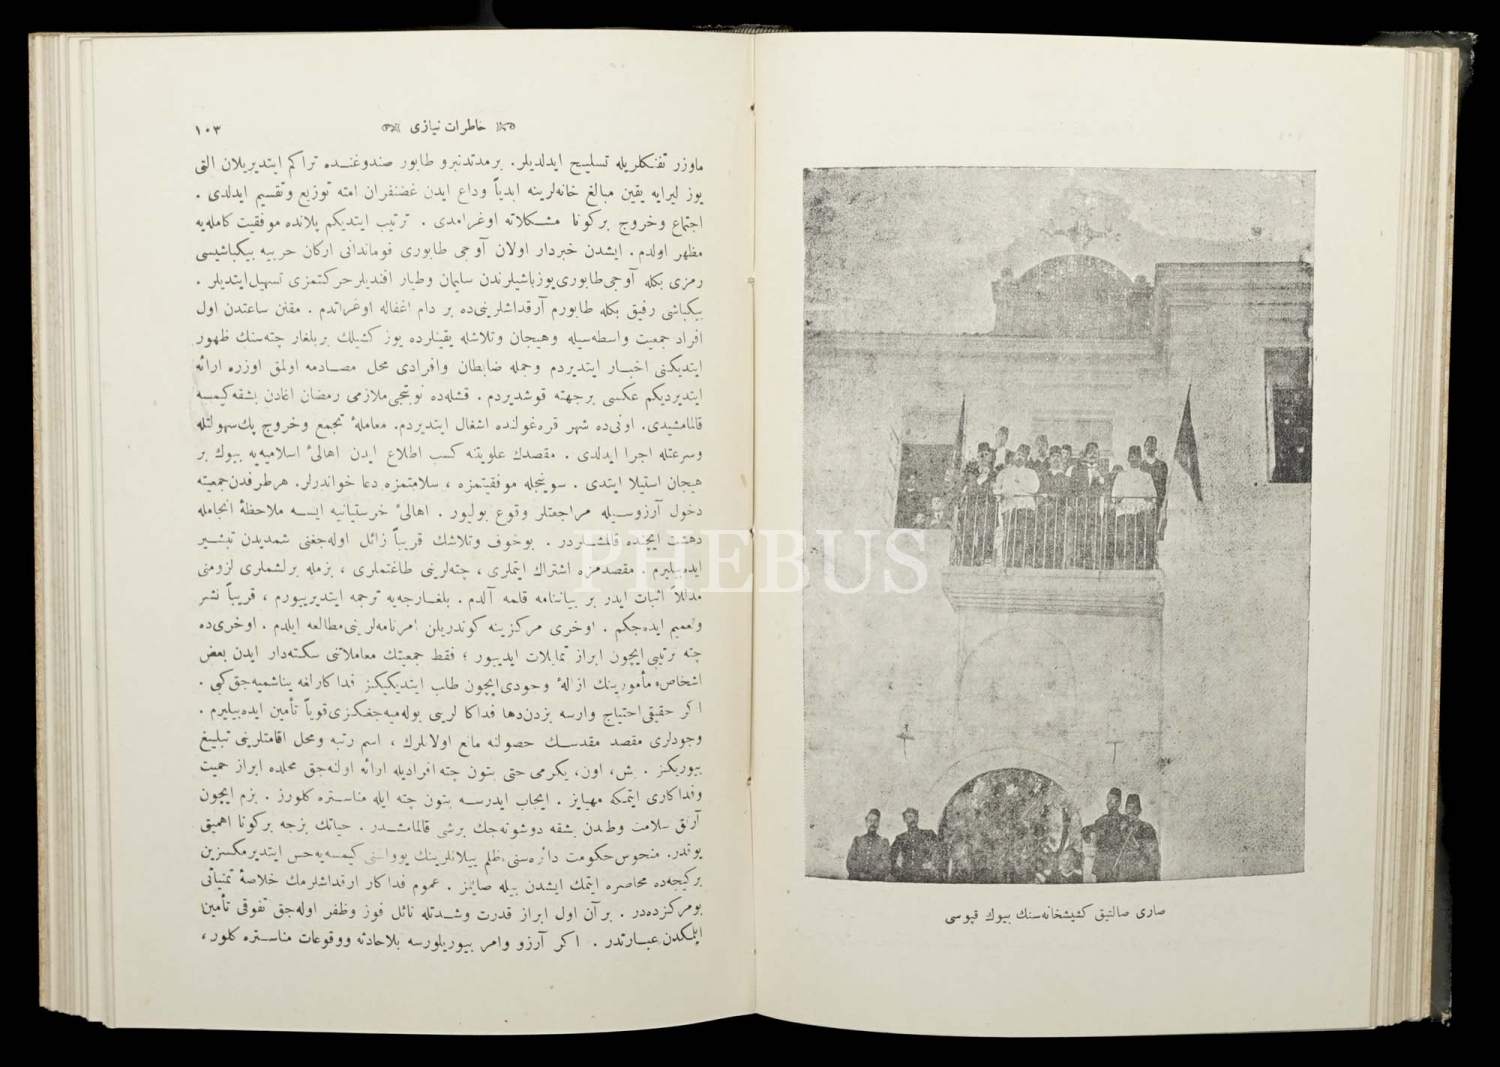 ١٠٣
خاطرات نیازی
ماوزر تفنکلریله تسلیح ایدلدیلر. برمدتدنبرو طابور صندوغنده تراکم ایتدیریلان التی
یوز لیرایه یقین مبالغ خانه‌لرینه ابدیاً وداع ایدن غضنفران امته توزیع وتقسیم ایدلدی .
اجتماع وخروج برکونا مشکلاته اوغرامدی . ترتیب ایتدیکم پلانده موفقیت کامله‌یه
مظهر اولدم . ایشدن خبردار اولان آوجی طابوری قوماندانی ارکان حربیه بیکباشیسی
رمزی بکله آوجی‌طابوری‌یوزباشیلرندن سلیمان وطیار افندیلرحرکتمزی تسهیل‌ایتدیلر .
بیکباشی رفیق بکله طابورم آرقداشلرینی‌ده بر دام اغفاله اوغراتدم . ساعتدن اول
افراد جمعیت واسطه‌سیله وهیجان وتلاشله یقینلرده یوز کشیلك بربلغار چته‌سنك ظهور
ایتدیکنی اخبار ایتدیردم وجمله ضابطان وافرادی محل مصادمه اولمق اوزره ارائه
ایتدیردیکم عکسی برجهته قوشدیردم . قشله‌ده نوبتجی‌ملازمی رمضان اغادن بشقه‌کیمسه
قالمامشیدی. اونی‌ده شهر قره‌غولنده اشغال ایتدیردم. معاملهٔ تجمع وخروج پك‌سهولتله
وسرعتله اجرا ایدلدی . مقصدك علویتنه کسب اطلاع ایدن اهالیٔ اسلامیه‌یه بیوك بر
هیجان استیلا ایتدی . سوینجله موفقیتمزه ، سلامتمزه دعا خواندرلر. هرطرفدن‌جمعیته
دخول آرزوسیله مراجعتلر وقوع بولیور . اهالیٔ خرستیانیه ایسه ملاحظهٔ انجامله
دهشت ایچنده قالمشلردر . بوخوف وتلاشك قریباً زائل اوله‌جغنی شمدیدن تبشیر
ایده‌بیلیرم . مقصدمزه اشتراك ایتملری ، چته‌لرینی طاغتملری ، بزمله برلشملری لزومنی
مدللاً اثبات ایدر بر بیاننامه قلمه آلدم . بلغارجه‌یه ترجمه ایتدیرییورم ، قریباً نشر
وتعمیم ایده‌جکم . اوخری مرکزینه کوندریلن امرنامه‌لرینی‌مطالعه ایلدم . اوخری‌ده
چته ترتیبی‌ایچون ابراز تمایلات ایدییور ؛ فقط جمعیتك معاملاتنی سکته‌دار ایدن بعض
اشخاص‌ومأمورینك ازالهٔ وجودی‌ایچون طلب ایتدیکیکز فداکارلغه یناشمیه‌جق‌کبی .
اکر حقیقی‌احتیاج وارسه بزدن‌دها فداکا لرینی بوله‌میه‌جغکزی‌قویاً تأمین ایده‌بیلیرم .
وجودلری مقصد مقدسك حصولنه مانع اولانلرك ، اسم رتبه ومحل اقامتلرینی تبلیغ
بیوریکز . بش، اون، یکرمی حتی بتون چته افرادیله ارائه اولنه‌جق محلده ابراز حمیت
وفداکاری ایتمکه مهیایز . ایجاب ایدرسه بتون چته ایله مناستره کلورز . بزم ایچون
آرتق سلامت وطندن بشقه دوشونه‌جك برشی قالمامشدر . حیاتك بزجه برکونا اهمیتی
یوقدر. منحوس‌حکومت دائره‌سنی،ظلم ییلانلرینك یوواسنی کیمسه‌یه‌حس ایتدیرمکسزین
برکیجه‌ده محاصره ایتمك ایشدن بیله صایلمز . عموم فداکار ارقداشلرمك خلاصهٔ تمنیاتی
بومرکزده‌در . برآن اول ابراز قدرت وشدتله نائل فوز وظفر اوله‌جق تفوقی تأمین
ایلمکدن عبارتدر . اکر آرزو وامر بیوریلورسه بلاحادثه ووقوعات مناستره کلور،
صاری صالتیق کشیشخانه‌سنك بیوك قپوسی
PHEBUS